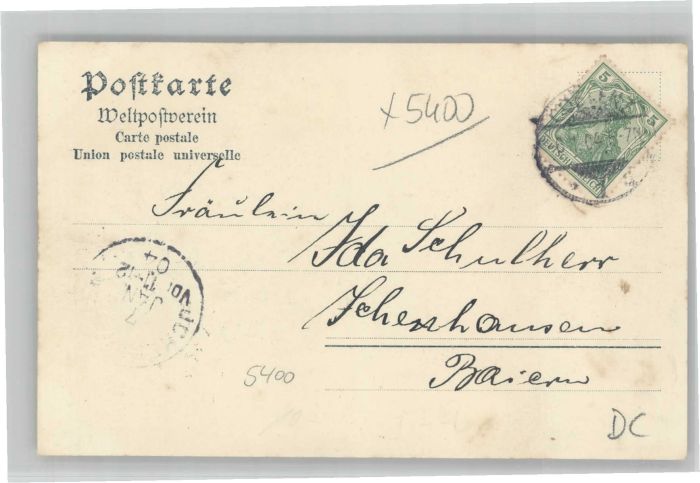 Postkarte
Weltpostverein
Carte postale
Union postale universelle
x 5400
5
5
Fräulein
Ida Schulherr
Ichenhausen
Baiern
7
JAN
11-12
04
5400
DC